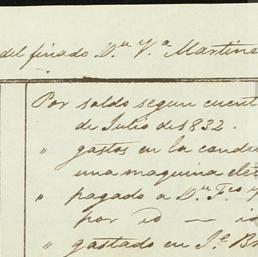 del finado Dn. Va. Martine
Por saldo segun cuent
de Julio de 1832.
" gastos en la condu
una maquina ele
" pagado a Dn. Fco. y
por id — id
" gastado en Je. Br